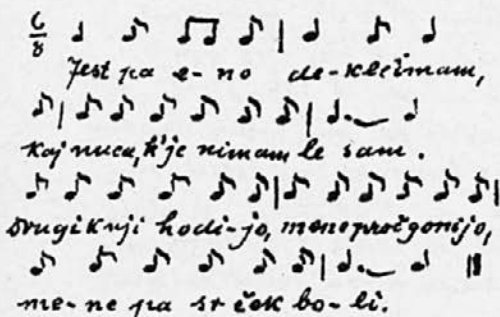 6/8
Jest pa e-no de-kle imam,
kaj nuca, k'je nimam le sam.
Drugi k nji hodi-jo, mene proč gonijo,
me-ne pa sr ček bo-li.